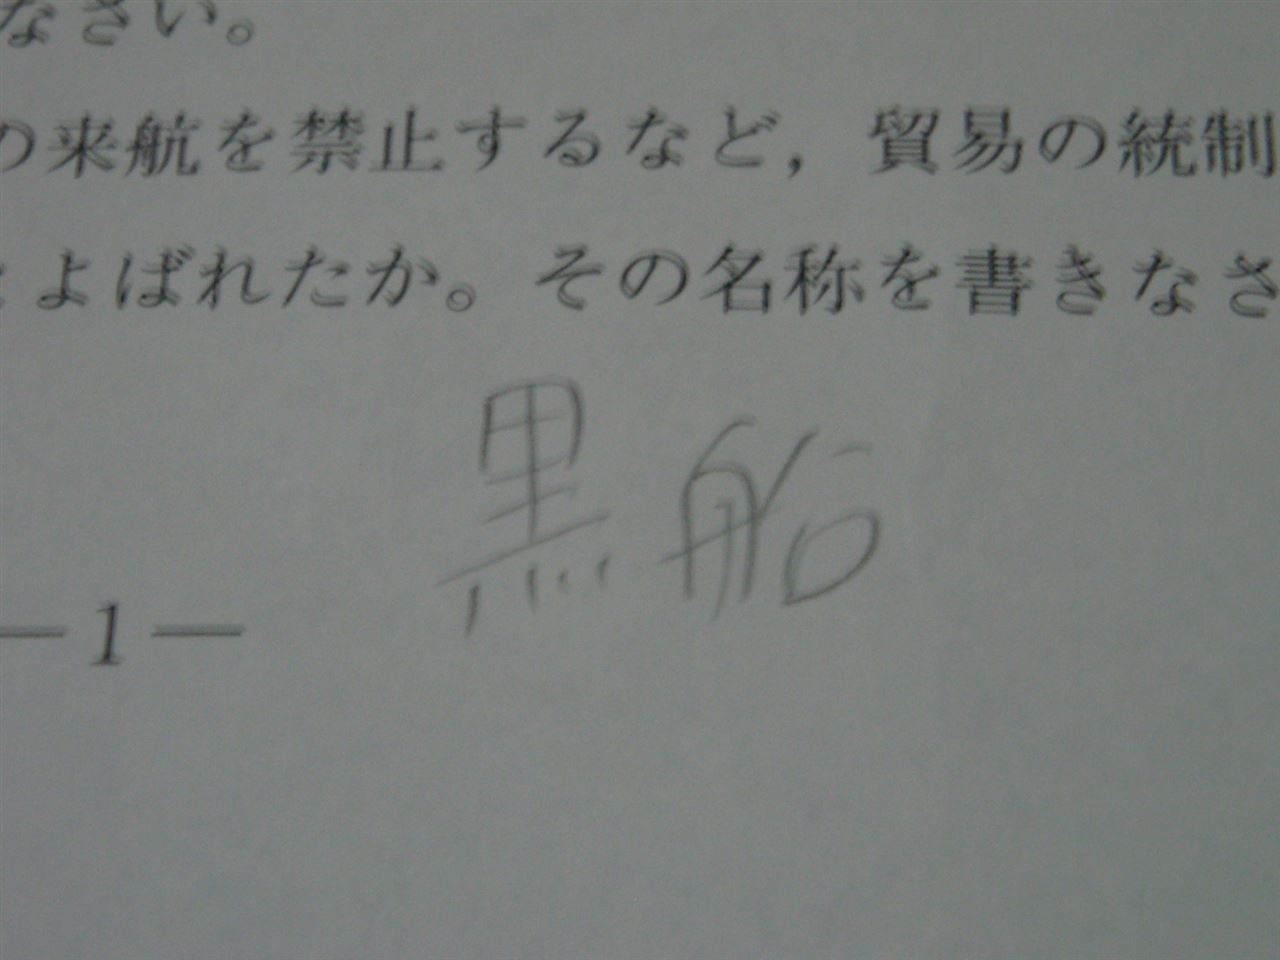 なさい。
の来航を禁止するなど，貿易の統制
よばれたか。その名称を書きなさ
黒船
―1―